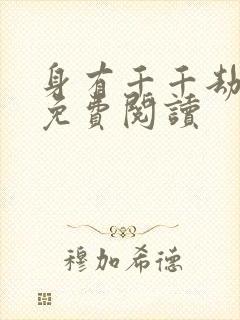 身有千千劫
免費閱讀
穆加希德